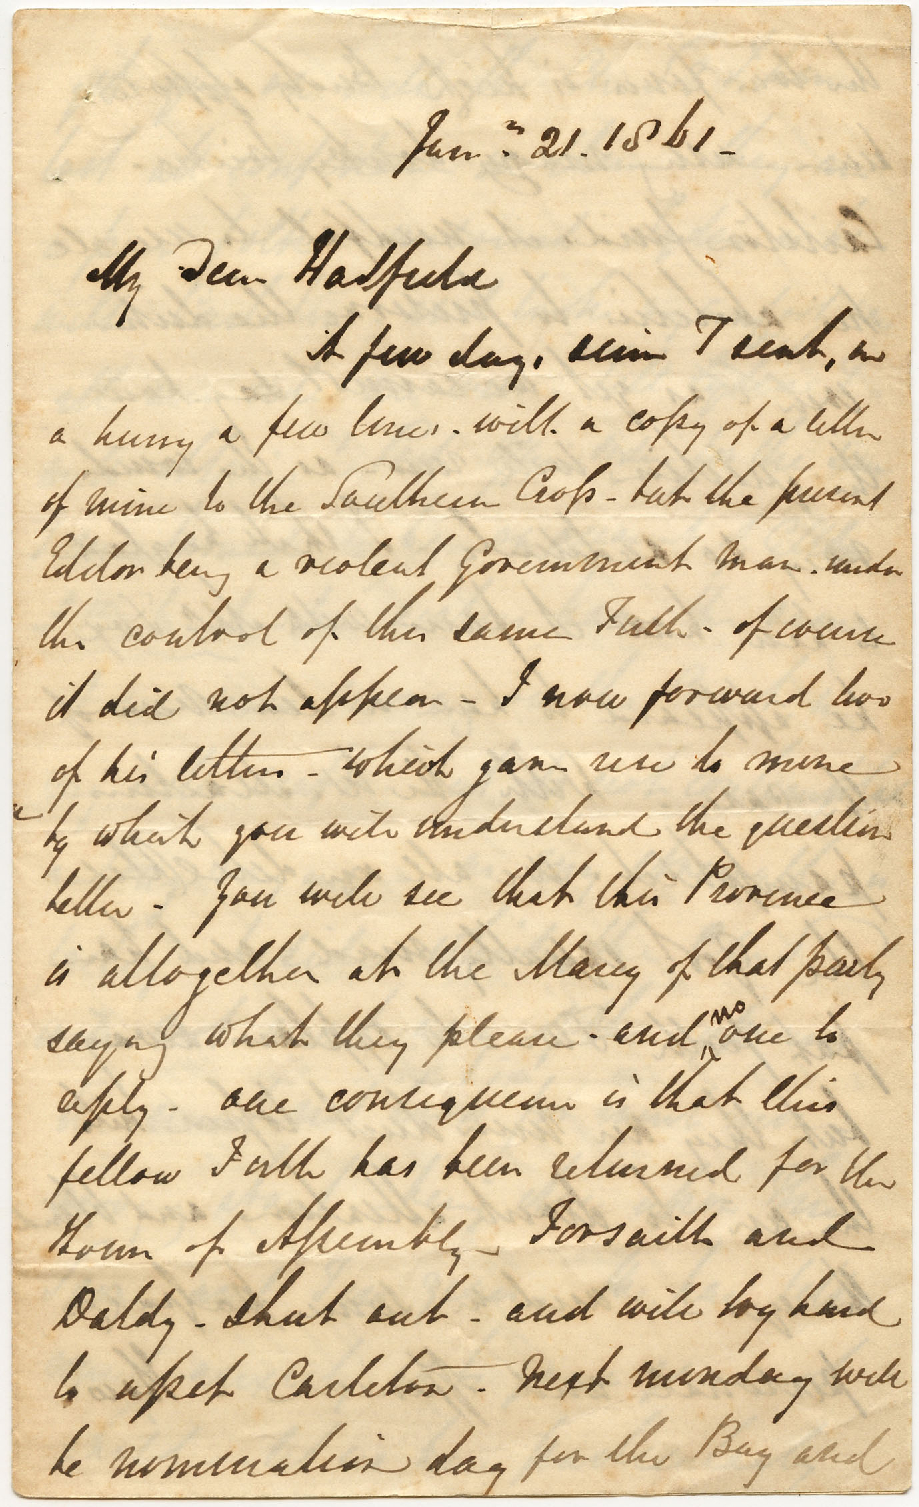 Jany. 21. 1861 -
My Dear Hadfield
A few days since I sent, in
a hurry a few lines - with a copy of a letter
of mine to the Southern Cross - but the present
Editor being a violent Government Man - under
the control of this same Firth - of course
it did not appear - I now forward two
of his letters - which gave rise to mine
by which you will understand the question
better - You will see that this Province
is altogether at the Marcy of that party
saying what they please - and no one to
reply - one consequence is that this
fellow Firth has been returned for the
House of Assembly - Forsaith and
Daldy - shut out - and will try hard
to upset Carleton - Next monday will
be nomination day for the Bay and